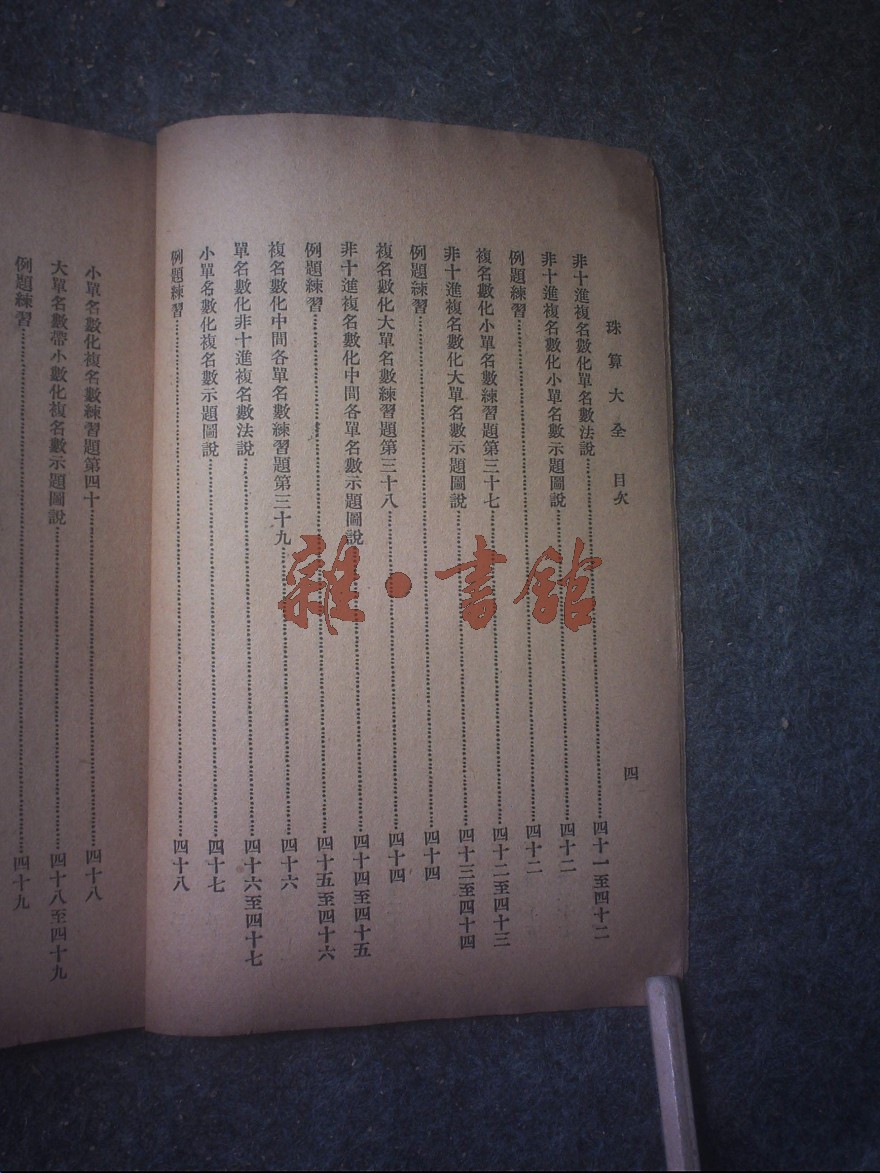 珠算大全 目次 四
非十進複名數化單名數法說……四十一至四十二
非十進複名數化小單名數示題圖說……四十二
例題練習……四十二
複名數化小單名數練習題第三十七……四十二至四十三
非十進複名數化大單名數示題圖說……四十三至四十四
例題練習……四十四
複名數化大單名數練習題第三十八……四十四
非十進複名數化中間各單名數示題圖說……四十四至四十五
例題練習……四十五至四十六
複名數化中間各單名數練習題第三十九……四十六
單名數化非十進複名數法說……四十六至四十七
小單名數化複名數示題圖說……四十七
例題練習……四十八
小單名數化複名數練習題第四十……四十八
大單名數帶小數化複名數示題圖說……四十八至四十九
例題練習……四十九
雜·書館